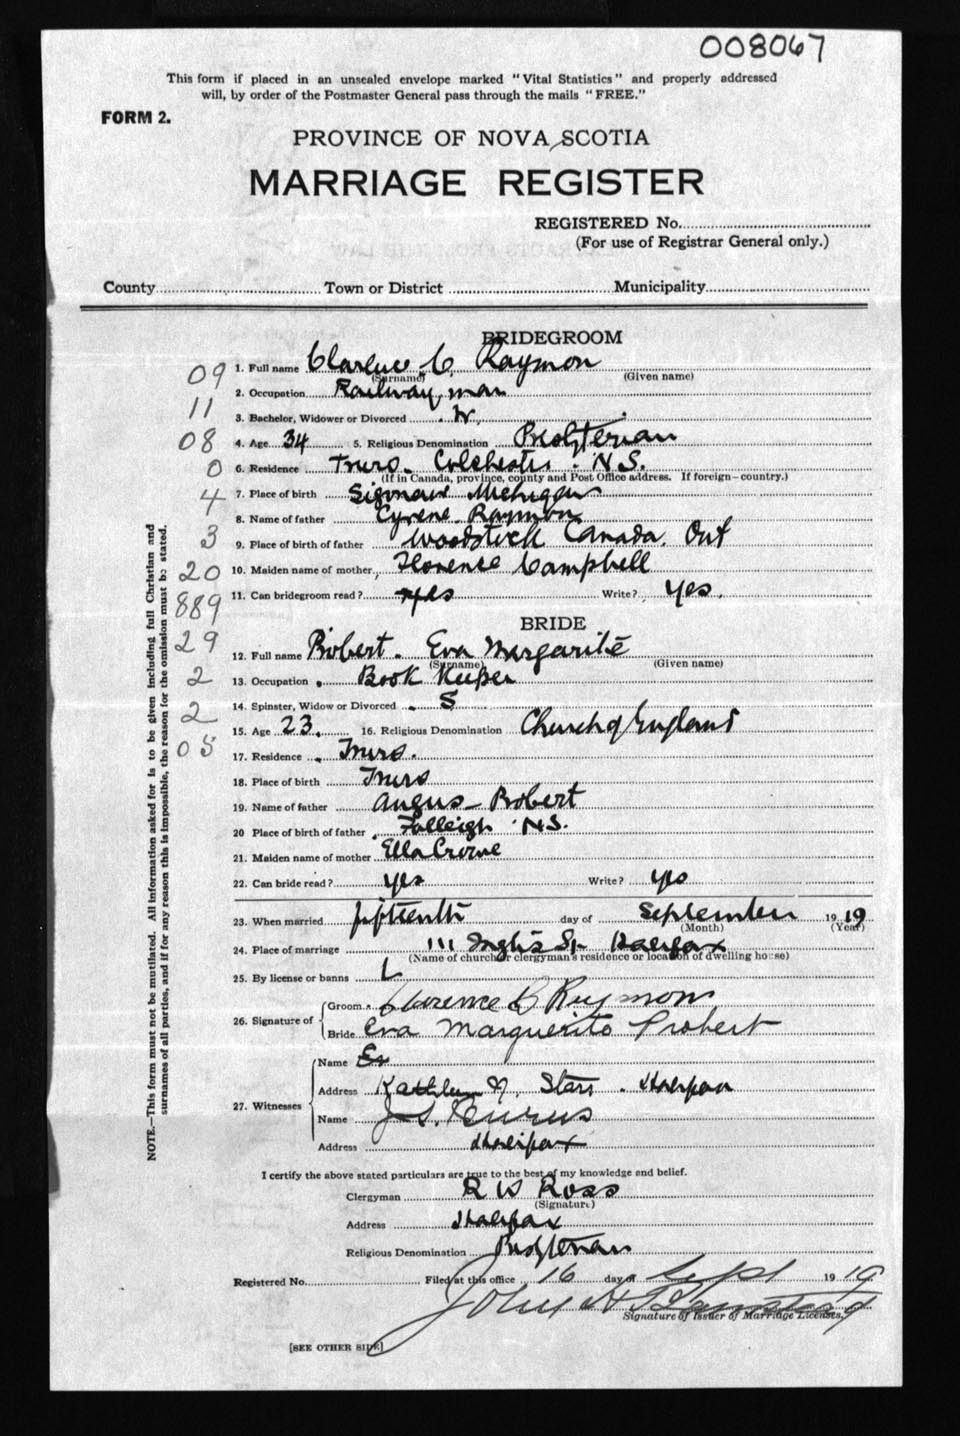 008067
This form if placed in an unsealed envelope marked "Vital Statistics" and properly addressed
will, by order of the Postmaster General pass through the mails "FREE."
FORM 2.
PROVINCE OF NOVA SCOTIA
MARRIAGE REGISTER
REGISTERED No.
(For use of Registrar General only.)
County Town or District Municipality
BRIDEGROOM
09
1. Full name Clarence C. Raymon
(Surname) (Given name)
2. Occupation Railway man
11
3. Bachelor, Widower or Divorced W.
08
4. Age 34 5. Religious Denomination Presbyterian
0
6. Residence Truro - Colchester . N.S.
(If in Canada, province, county and Post Office address. If foreign—country.)
4
7. Place of birth Michigan
8. Name of father Cyrene Raymon
3
9. Place of birth of father Woodstock Canada. Ont
20
10. Maiden name of mother Florence Campbell
889
11. Can bridegroom read? yes Write? Yes.
BRIDE
29
12. Full name Probert - Eva Margarite
(Surname) (Given name)
2
13. Occupation Book Keeper
2
14. Spinster, Widow or Divorced S
15. Age 23. 16. Religious Denomination Church of England
05
17. Residence Truro.
18. Place of birth Truro
19. Name of father Angus - Probert
20 Place of birth of father Folleigh N.S.
21. Maiden name of mother Ella Crowe
22. Can bride read? yes Write? yes
23. When married fifteenth day of September 1919
(Month) (Year)
24. Place of marriage 111 Inglis St Halifax
(Name of church or clergyman's residence or location of dwelling house)
25. By license or banns L
26. Signature of
Groom Clarence C Raymon
Bride Eva Marguerite Probert
27. Witnesses
Name Ev
Address Kathleen Starr . Halifax
Name J. S.
Address Halifax
I certify the above stated particulars are true to the best of my knowledge and belief.
Clergyman R W Ross
(Signature)
Address Halifax
Religious Denomination Presbyterian
Registered No. Filed at this office 16 day of Sept 1919
John H
Signature of Issuer of Marriage Licenses.
[SEE OTHER SIDE]
NOTE.—This form must not be mutilated. All information asked for is to be given including full Christian and
surnames of all parties, and if for any reason this is impossible, the reason for the omission must be stated.